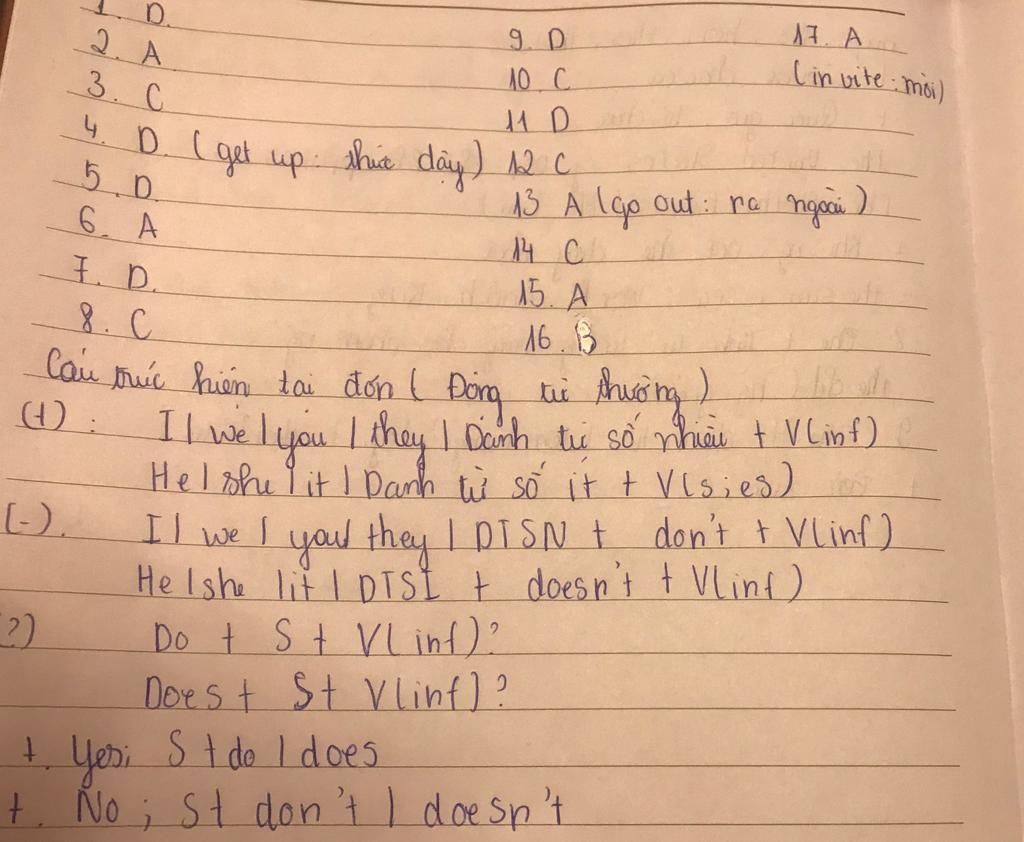 1. D.
2. A
3. C
4. D. (get up: thức dậy)
5. D.
6. A
7. D.
8. C
9. D
10. C
11 D
12 C
13 A (go out: ra ngoài)
14 C
15. A
16. B
17. A
(invite: mời)
Cấu trúc hiện tại đơn (Động từ thường)
(+): I | we | you | they | Danh từ số nhiều + V(inf)
He | she | it | Danh từ số ít + V(s; es)
(-). I | we | you | they | DTSN + don't + V(inf)
He | she | it | DTSI + doesn't + V(inf)
?) Do + S + V(inf)?
Does + S + V(inf)?
+. Yes; S + do | does
+. No; S + don't | doesn't